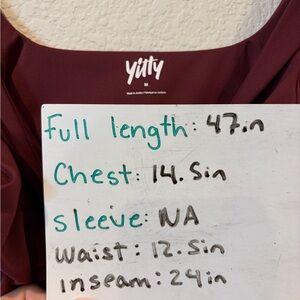 yitty
M
Full length: 47in
Chest: 14.5in
sleeve: NA
Waist: 12.5in
inseam: 24in